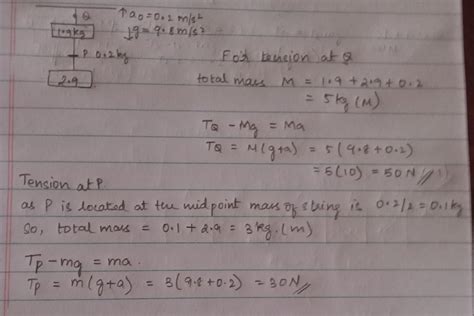 Q ↑a₀=0.2 m/s²
1.9kg ↓g=9.8m/s²
P 0.2kg
2.9
For tension at Q
total mass M = 1.9 + 2.9 + 0.2
= 5kg (M)
T_Q - Mg = Ma
T_Q = M(g+a) = 5(9.8+0.2)
= 5(10) = 50N //
Tension at P
as P is located at the midpoint mass of string is 0.2/2 = 0.1kg
So, total mass = 0.1 + 2.9 = 3kg. (m)
T_P - mg = ma.
T_P = m(g+a) = 3(9.8+0.2) = 30N//